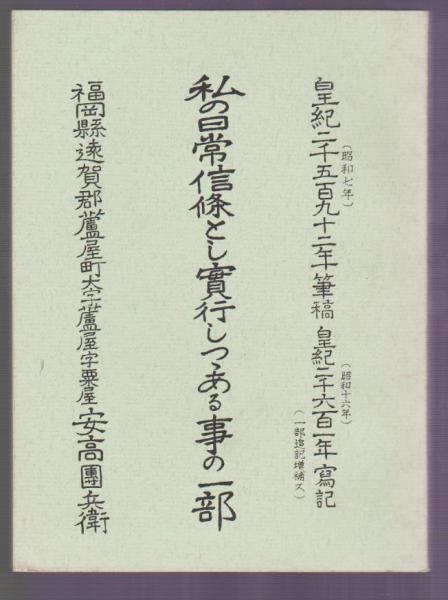 皇紀二千五百九十二年筆稿 皇紀二千六百一年寫記
(昭和七年)
(昭和十六年)
(一部追記増補ス)
私の日常信條とし實行しつゝある事の一部
福岡縣遠賀郡蘆屋町大字蘆屋字粟屋 安高團兵衛